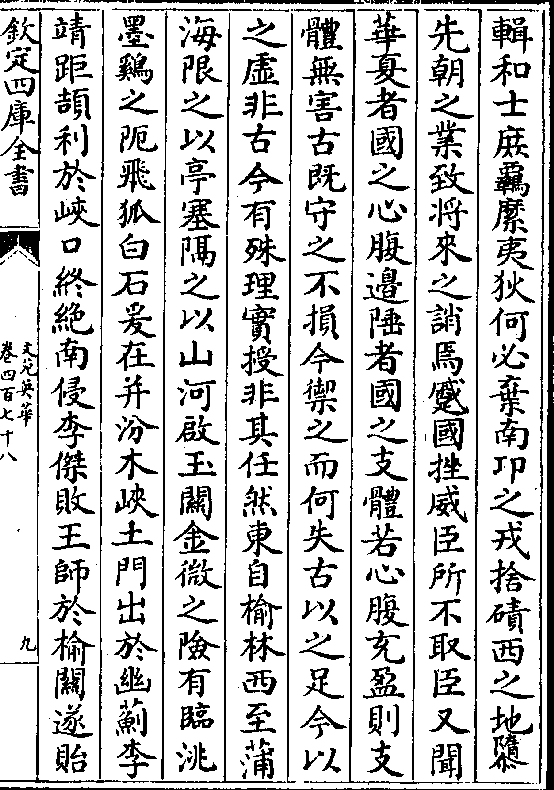 輯和士庶羈縻夷狄何必棄南卭之戎捨磧西之地隳
先朝之業致將來之誚焉蹙國挫威臣所不取臣又聞
華夏者國之心腹邊陲者國之支體若心腹充盈則支
體無害古既守之不損今禦之而何失古以之足今以
之虛非古今有殊理實授非其任然東自榆林西至蒲
海限之以亭塞隔之以山河啟玉關金微之險有臨洮
墨鷄之阨飛狐白石爰在并汾木峽土門出於幽薊李
靖距頡利於峽口終絶南侵李傑敗王師於榆關遂貽
欽定四庫全書
文苑英華
卷四百七十八
九